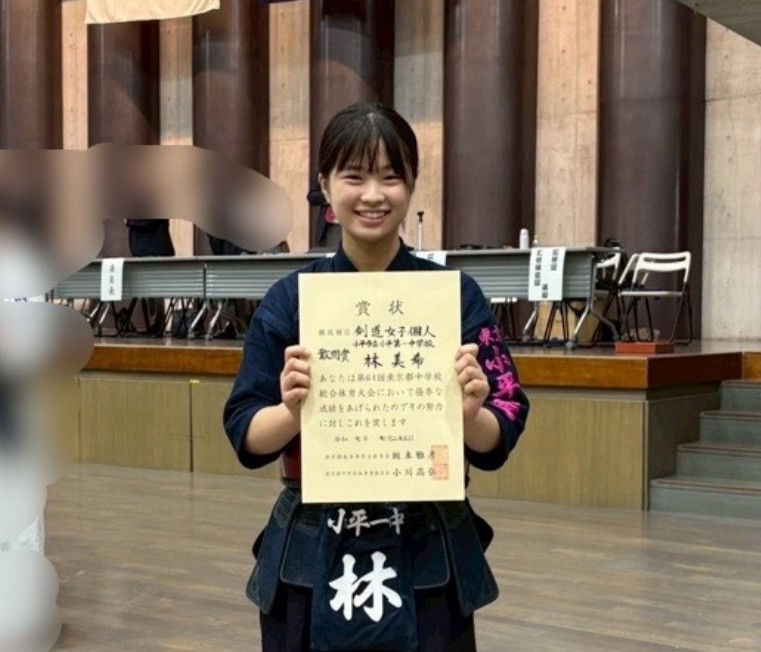 賞状
剣道女子個人
小平市立小平第一中学校
敢闘賞 林 美希
あなたは第64回東京都中学校
総合体育大会において優秀な
成績をあげられたのでその努力
に対しこれを賞します
令和 七年
小川高弘
東京
小平
小平一中
林
委員長